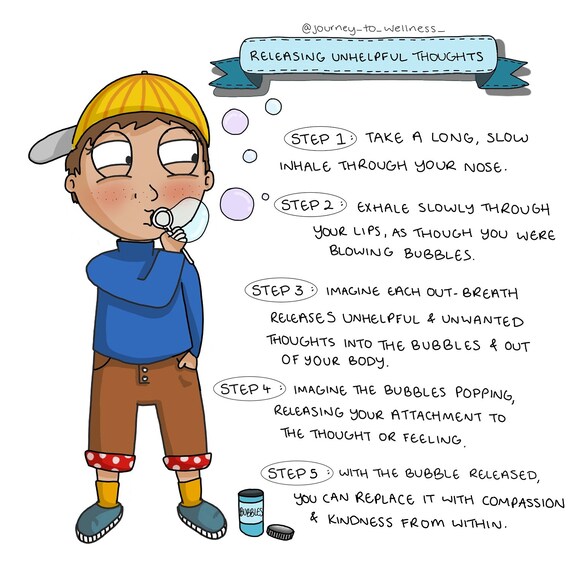 @journey_to_wellness_
RELEASING UNHELPFUL THOUGHTS
STEP 1: TAKE A LONG, SLOW
INHALE THROUGH YOUR NOSE.
STEP 2: EXHALE SLOWLY THROUGH
YOUR LIPS, AS THOUGH YOU WERE
BLOWING BUBBLES.
STEP 3: IMAGINE EACH OUT-BREATH
RELEASES UNHELPFUL & UNWANTED
THOUGHTS INTO THE BUBBLES & OUT
OF YOUR BODY.
STEP 4: IMAGINE THE BUBBLES POPPING,
RELEASING YOUR ATTACHMENT TO
THE THOUGHT OR FEELING.
STEP 5: WITH THE BUBBLE RELEASED,
YOU CAN REPLACE IT WITH COMPASSION
& KINDNESS FROM WITHIN.
BUBBLES